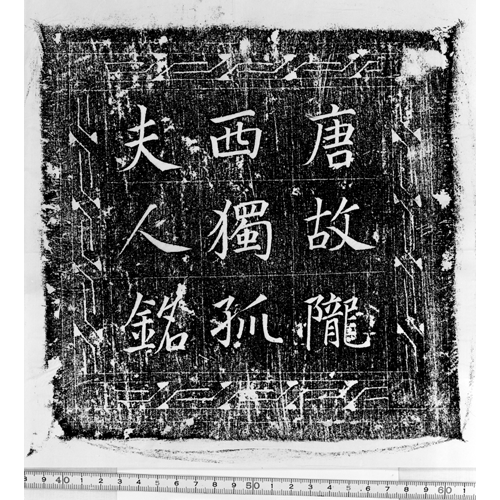 唐故隴
西獨孤
夫人銘
40 1 2 3 4 5 6 7 8 9 50 1 2 3 4 5 6 7 8 9 60 1